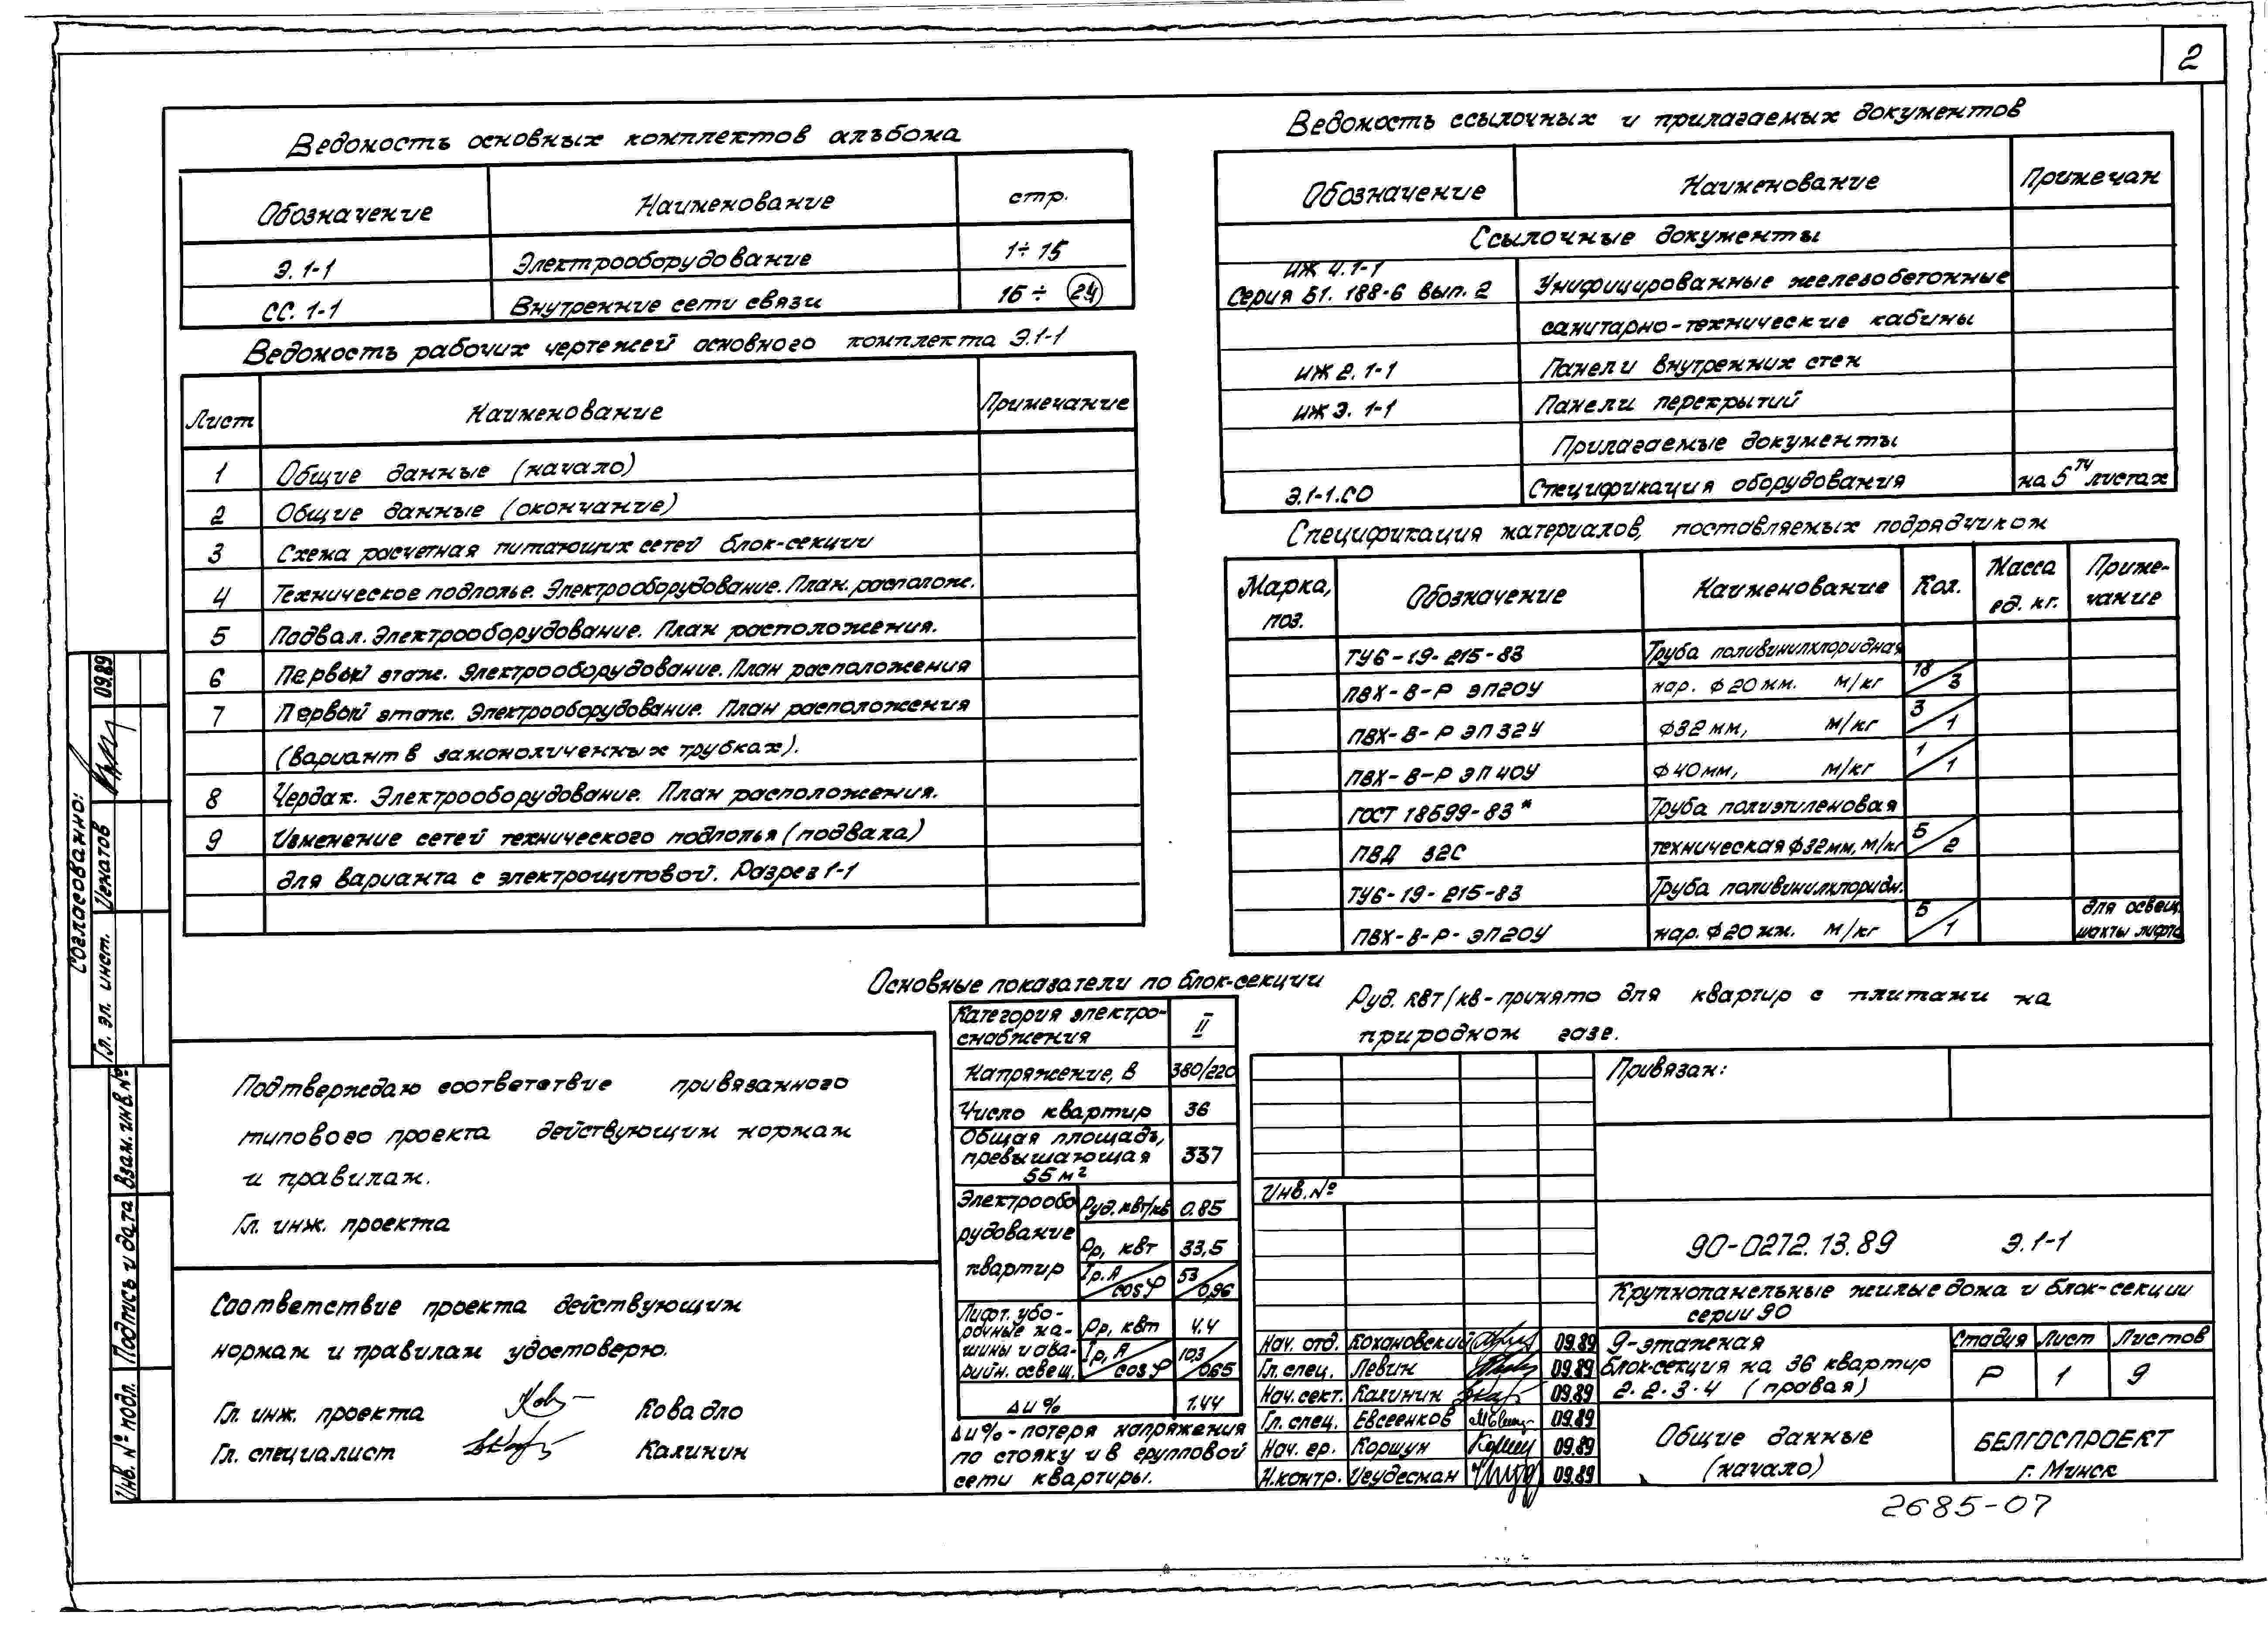 2
Ведомость основных комплектов альбома
Обозначение Наименование стр.
Э.1-1 Электрооборудование 1÷15
СС.1-1 Внутренние сети связи 16÷ 24
Ведомость рабочих чертежей основного комплекта Э.1-1
Лист Наименование Примечание
1 Общие данные (начало)
2 Общие данные (окончание)
3 Схема расчетная питающих сетей блок-секции
4 Техническое подполье. Электрооборудование. План. располож.
5 Подвал. Электрооборудование. План расположения.
6 Первый этаж. Электрооборудование. План расположения
7 Первый этаж. Электрооборудование. План расположения
(вариант в замоноличенных трубках).
8 Чердак. Электрооборудование. План расположения.
9 Изменение сетей технического подполья (подвала)
для варианта с электрощитовой. Разрез 1-1
Ведомость ссылочных и прилагаемых документов
Обозначение Наименование Примечан
Ссылочные документы
ИЖ 4.1-1
Серия Б1. 188-6 вып. 2 Унифицированные железобетонные
санитарно-технические кабины
ИЖ 2. 1-1 Панели внутренних стен
ИЖ 3. 1-1 Панели перекрытий
Прилагаемые документы
Э.1-1.СО Спецификация оборудования на 5ти листах
Спецификация материалов, поставляемых подрядчиком
Марка, поз. Обозначение Наименование Кол. Масса ед. кг. Приме-чание
ТУ6-19-215-83 Труба поливинилхлоридная
ПВХ-В-Р ЭП20У нар. ф 20 мм. м/кг 18/3
ПВХ-В-Р ЭП 32У ф32 мм, м/кг 3/1
ПВХ-В-Р ЭП 40У ф 40мм, м/кг 1/1
ГОСТ 18599-83* Труба полиэтиленовая
ПВД 32С техническая ф32мм, м/кг 5/2
ТУ6-19-215-83 Труба поливинилхлоридн.
ПВХ-В-Р-ЭП20У нар. ф 20 мм. м/кг 5/1 для освещ. шахты лифта
Основные показатели по блок-секции
Категория электро-
снабжения II
Напряжение, В 380/220
Число квартир 36
Общая площадь,
превышающая 337
55 м²
Электрообо
рудование
квартир
Руд. квт/кв 0.85
Рр, квт 33,5
Iр. А/cosφ 53/0,96
Лифт. убо-
рочные ма-
шины и ава-
рийн. освещ.
Рр, квт 4.4
Iр, А/cosφ 10,3/0,65
Δu% 1.44
Δu% - потеря напряжения
по стояку и в групповой
сети квартиры.
Руд. квт/кв - принято для квартир с плитами на
природном газе.
Подтверждаю соответствие привязанного
типового проекта действующим нормам
и правилам.
Гл. инж. проекта
Соответствие проекта действующим
нормам и правилам удостоверю.
Гл. инж. проекта Ковадло
Гл. специалист Калинин
Привязан:
Инв. №
90-0272.13.89 Э.1-1
Крупнопанельные жилые дома и блок-секции
серии 90
Нач. отд. Кохановский 09.89
Гл. спец. Левин 09.89
Нач. сект. Калинин 09.89
Гл. спец. Евсеенков 09.89
Нач. гр. Коршун 09.89
Н.контр. 09.89
9-этажная
блок-секция на 36 квартир
2.2.3.4 (правая)
Стадия Лист Листов
Р 1 9
Общие данные
(начало)
БЕЛГОСПРОЕКТ
г. Минск
2685-07
Согласованно:
Гл. эл. инст. Игнатов 09.89
Взам. инв. №
Подпись и дата
Инв. № подл.